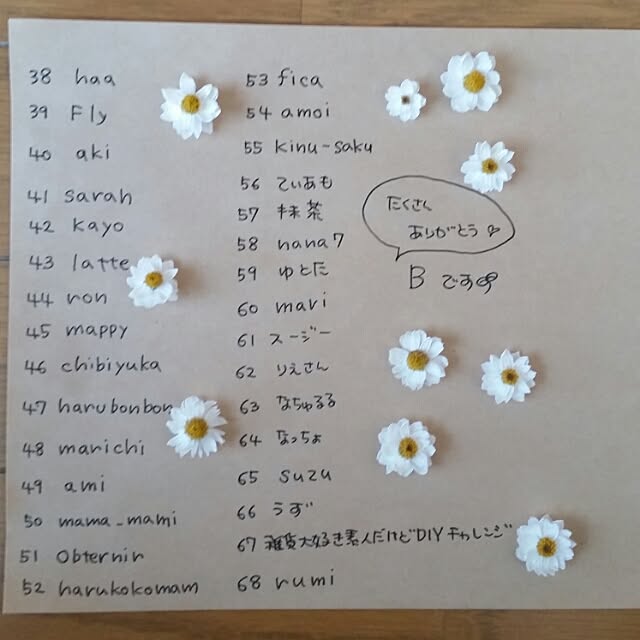 38 haa
39 Fly
40 aki
41 sarah
42 kayo
43 latte
44 ron
45 mappy
46 chibiyuka
47 harubonbon
48 marichi
49 ami
50 mama_mami
51 Obternir
52 harukokomam
53 fica
54 amoi
55 kinu-saku
56 てぃあも
57 抹茶
58 nana7
59 ゆとた
60 mari
61 スージー
62 りえさん
63 なちゅるる
64 なっちょ
65 suzu
66 うず
67 雑貨大好き素人だけどDIYチャレンジ
68 rumi
たくさん
ありがとう
B です